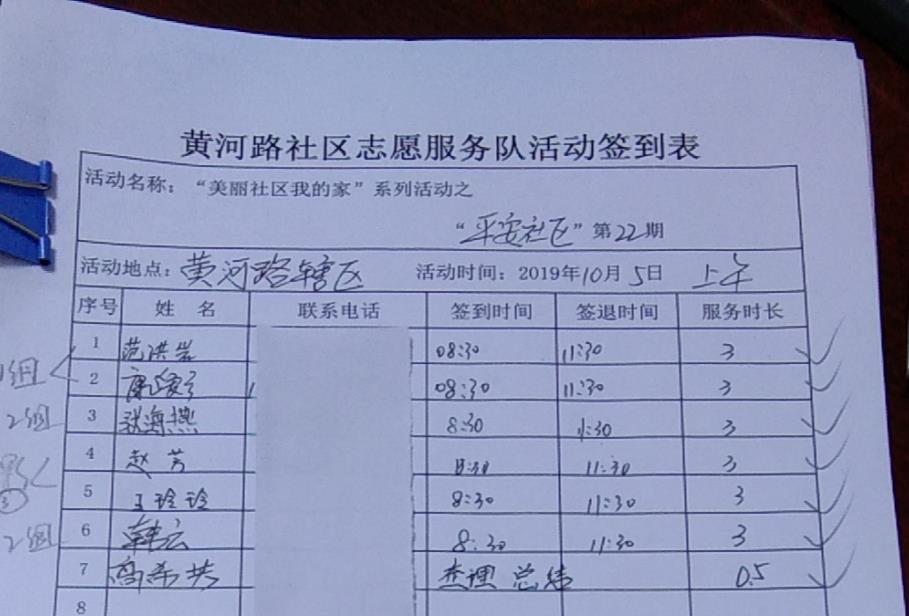 黄河路社区志愿服务队活动签到表
活动名称：“美丽社区我的家”系列活动之
“平安社区”第22期
活动地点：黄河路辖区 活动时间：2019年10月5日 上午
序号 姓名 联系电话 签到时间 签退时间 服务时长
1 范洪岩 08:30 11:30 3
1组
2 08:30 11:30 3
2组 3 张海燕 8:30 11:30 3
4 赵芳 8:30 11:30 3
5 王玲玲 8:30 11:30 3
2组 6 韩云 8:30 11:30 3
7 高希芸 查理 总结 0.5
8